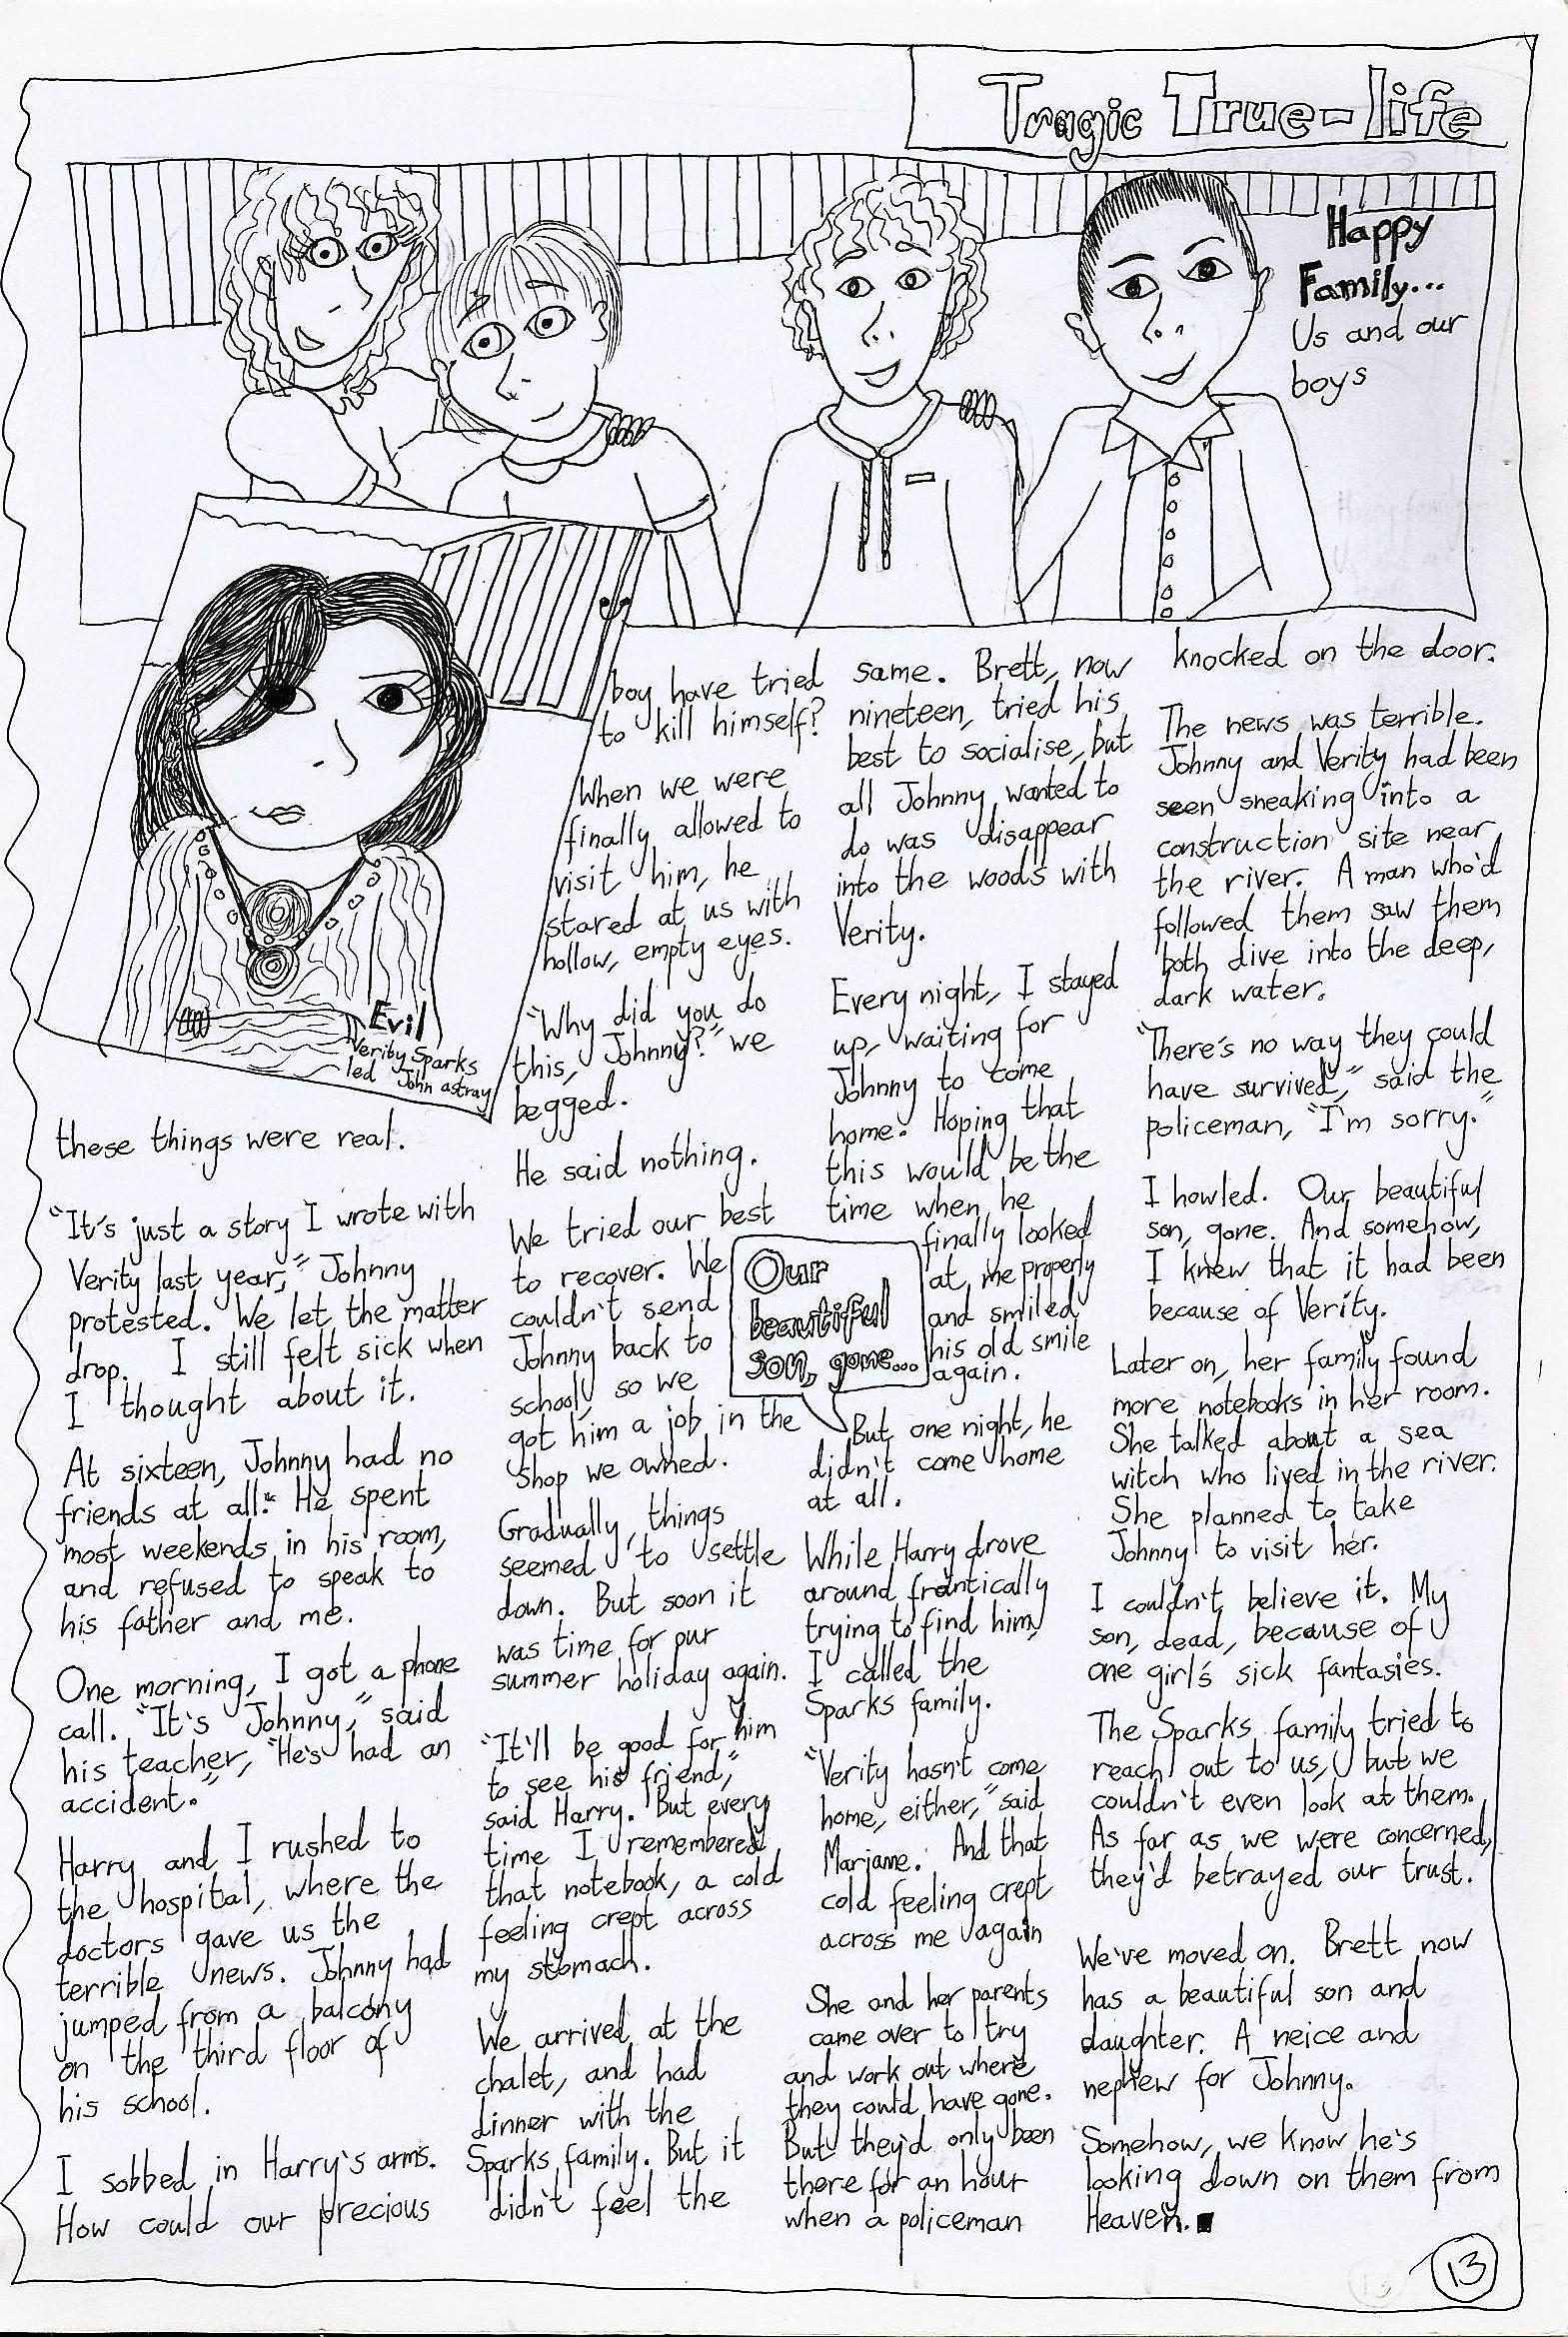 Tragic True-life
Happy
Family...
Us and our
boys
Evil
Verity Sparks
led John astray
these things were real.
"It's just a story I wrote with
Verity last year," Johnny
protested. We let the matter
drop. I still felt sick when
I thought about it.
At sixteen, Johnny had no
friends at all. He spent
most weekends in his room,
and refused to speak to
his father and me.
One morning, I got a phone
call. "It's Johnny," said
his teacher, "He's had an
accident."
Harry and I rushed to
the hospital, where the
doctors gave us the
terrible news. Johnny had
jumped from a balcony
on the third floor of
his school.
I sobbed in Harry's arms.
How could our precious
boy have tried
to kill himself?
When we were
finally allowed to
visit him, he
stared at us with
hollow, empty eyes.
"Why did you do
this, Johnny?" we
begged.
He said nothing.
We tried our best
to recover. We
couldn't send
Johnny back to
school, so we
got him a job in the
shop we owned.
Gradually, things
seemed to settle
down. But soon it
was time for our
summer holiday again.
"It'll be good for him
to see his friend,"
said Harry. But every
time I remembered
that notebook, a cold
feeling crept across
my stomach.
We arrived at the
chalet, and had
dinner with the
Sparks family. But it
didn't feel the
same. Brett, now
nineteen, tried his
best to socialise, but
all Johnny wanted to
do was disappear
into the woods with
Verity.
Every night, I stayed
up, waiting for
Johnny to come
home. Hoping that
this would be the
time when he
finally looked
at me properly
and smiled
his old smile
again.
Our
beautiful
son, gone...
But one night, he
didn't come home
at all.
While Harry drove
around frantically
trying to find him,
I called the
Sparks family.
"Verity hasn't come
home, either," said
Marjane. And that
cold feeling crept
across me again
She and her parents
came over to try
and work out where
they could have gone.
But they'd only been
there for an hour
when a policeman
knocked on the door.
The news was terrible.
Johnny and Verity had been
seen sneaking into a
construction site near
the river. A man who'd
followed them saw them
both dive into the deep,
dark water.
"There's no way they could
have survived," said the
policeman, "I'm sorry."
I howled. Our beautiful
son, gone. And somehow,
I knew that it had been
because of Verity.
Later on, her family found
more notebooks in her room.
She talked about a sea
witch who lived in the river.
She planned to take
Johnny to visit her.
I couldn't believe it. My
son, dead, because of
one girl's sick fantasies.
The Sparks family tried to
reach out to us, but we
couldn't even look at them.
As far as we were concerned,
they'd betrayed our trust.
We've moved on. Brett now
has a beautiful son and
daughter. A neice and
nephew for Johnny.
Somehow, we know he's
looking down on them from
Heaven.
13